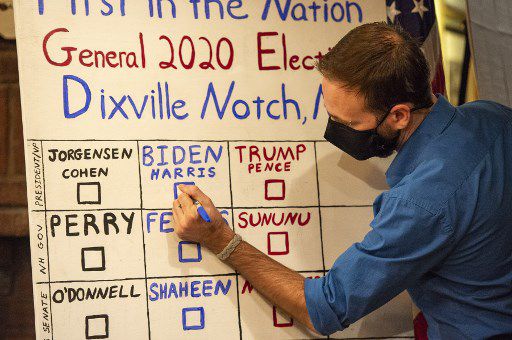 First in the Nation
General 2020 Electi
Dixville Notch, N
PRESIDENT/VP
JORGENSEN
COHEN
BIDEN
HARRIS
TRUMP
PENCE
NH GOV.
PERRY
FE
SUNUNU
SENATE
O'DONNELL
SHAHEEN